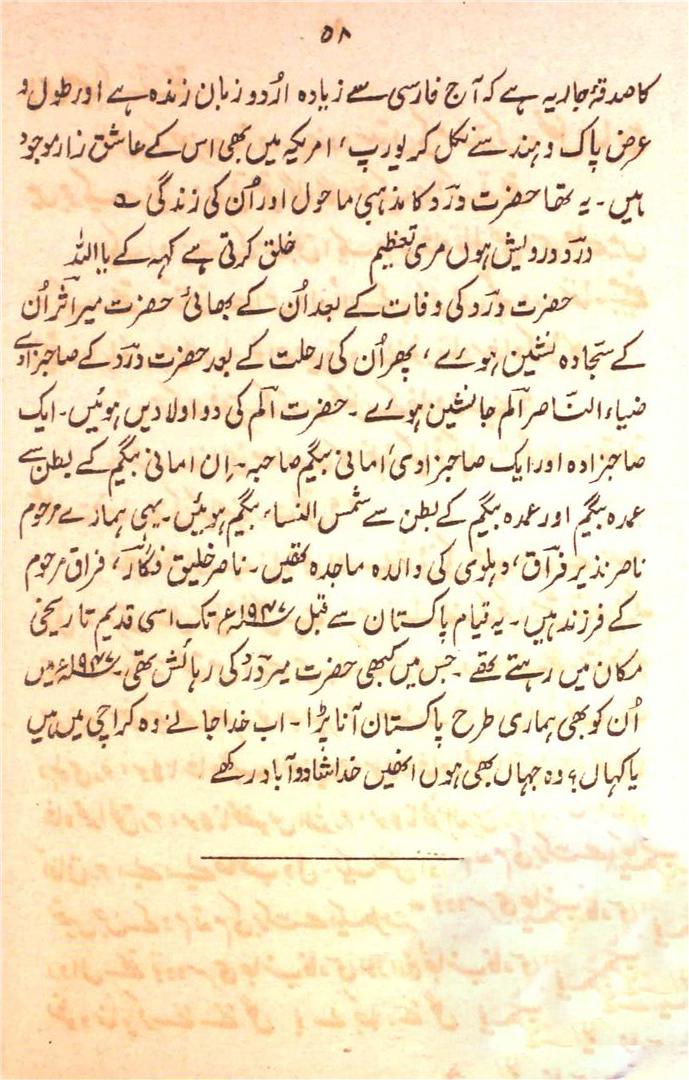 ۵۸
کا صدقۂ جاریہ ہے کہ آج فارسی سے زیادہ اُردو زبان زندہ ہے اور طول و
عرض پاک و ہند سے نکل کر یورپ، امریکہ میں بھی اس کے عاشق زار موجود
ہیں۔ یہ تھا حضرت دردؔ کا مذہبی ماحول اور اُن کی زندگی ؎
دردؔ درویش ہوں مری تعظیم خلق کرتی ہے کہہ کے یا اللہ
حضرت دردؔ کی وفات کے بعد اُن کے بھائی حضرت میر اثرؔ اُن
کے سجّادہ نشین ہوئے، پھر اُن کی رحلت کے بعد حضرت دردؔ کے صاحبزادے
ضیاء النّاصر آلمؔ جانشین ہوئے۔ حضرت آلمؔ کی دو اولادیں ہوئیں۔ ایک
صاحبزادہ اور ایک صاحبزادی امانی بیگم صاحبہ۔ اِن امانی بیگم کے بطن سے
عمدہ بیگم اور عمدہ بیگم کے بطن سے شمس النساء بیگم ہوئیں۔ یہی ہمارے مرحوم
ناصر نذیر فراقؔ، دہلوی کی والدہ ماجدہ تھیں۔ ناصر خلیق فگارؔ، فراق مرحوم
کے فرزند ہیں۔ یہ قیام پاکستان سے قبل ۱۹۴۷ء تک اسی قدیم تاریخی
مکان میں رہتے تھے۔ جس میں کبھی حضرت میر دردؔ کی رہائش تھی۔ ۱۹۴۷ء میں
اُن کو بھی ہماری طرح پاکستان آنا پڑا۔ اب خدا جانے وہ کراچی میں ہیں
یا کہاں؟ وہ جہاں بھی ہوں انھیں خدا شاد و آباد رکھے